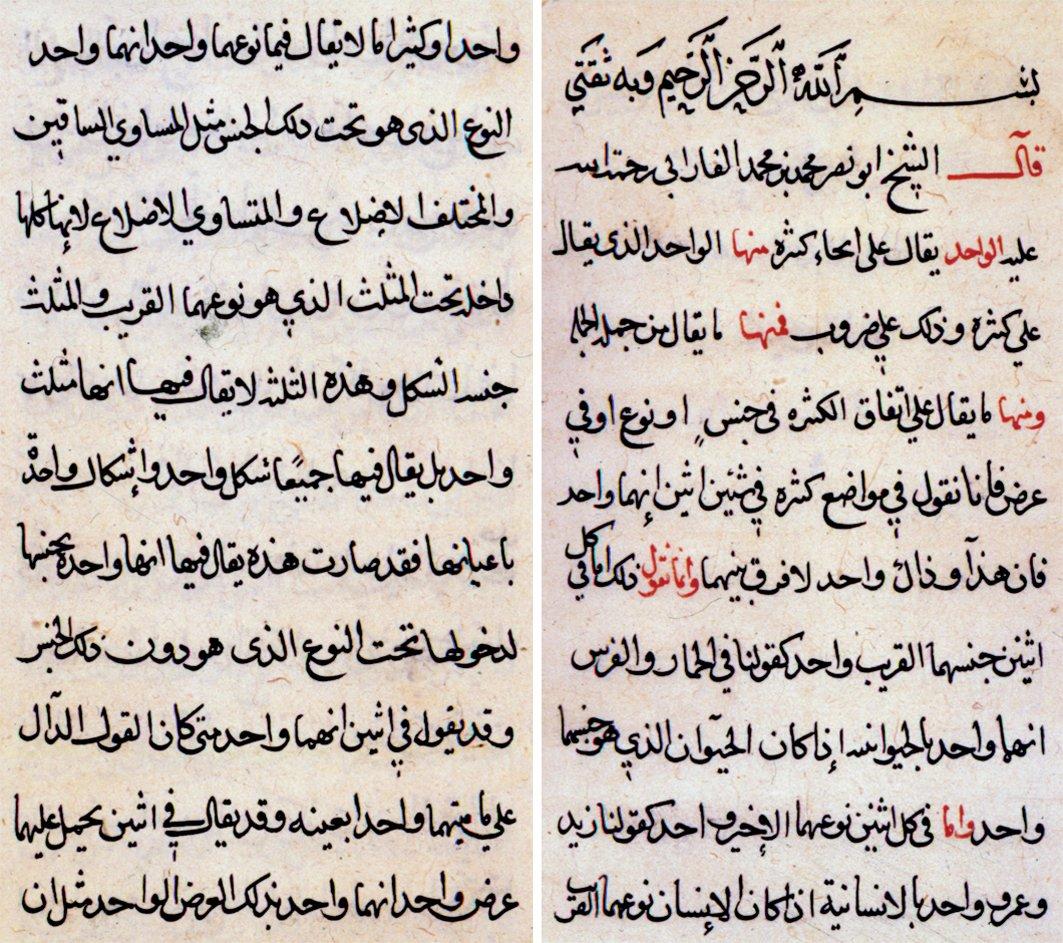 بسم الله الرحمن الرحيم وبه ثقتي
قال الشيخ ابو نصر محمد بن محمد الفارابي رحمت الله
عليه الواحد يقال على انحاء كثره منها الواحد الذي يقال
علي كثره وذلك علي ضروب فمنها ما يقال من جمله
ومنها ما يقال علي اتفاق الكثره في جنس او نوع او في
عرض فاننا نقول في مواضع كثره في شئين اثنين انهما واحد
فان هذا وذاك واحد لا فرق بينهما وانما نقول ذلك اما في كل
اثنين جنسهما القريب واحد كقولنا في الحمار والفرس
انهما واحد بالحيوانيه اذا كان الحيوان الذي هو جنسهما
واحد واما في كل اثنين نوعهما الاخير واحد كقولنا زيد
وعمرو واحد بالانسانية اذا كان الإنسان نوعهما القريب
واحدا وكثيرا ما لا يقال فيما نوعهما واحد انهما واحد
النوع الذى هو تحت ذلك الجنس مثل المساوي الساقين
والمختلف الاضلاع والمتساوي الاضلاع لانها كلها
داخله تحت المثلث الذي هو نوعهما القريب والمثلث
جنسه الشكل وهذه الثلثه لا يقال فيها انها مثلث
واحد بل يقال فيها جميعًا شكل واحد وإشكال واحدة
باعيانها فقد صارت هذه يقال فيها انها واحده بجنسها
لدخولها تحت النوع الذى هو دون ذلك الجنس
وقد يقول في اثنين انهما واحد متى كان القول الدآل
علي ماهيتهما واحدا بعينه وقد يقال في اثنين يحمل عليهما
عرض واحد انهما واحد بذلك العرض الواحد مثل ان